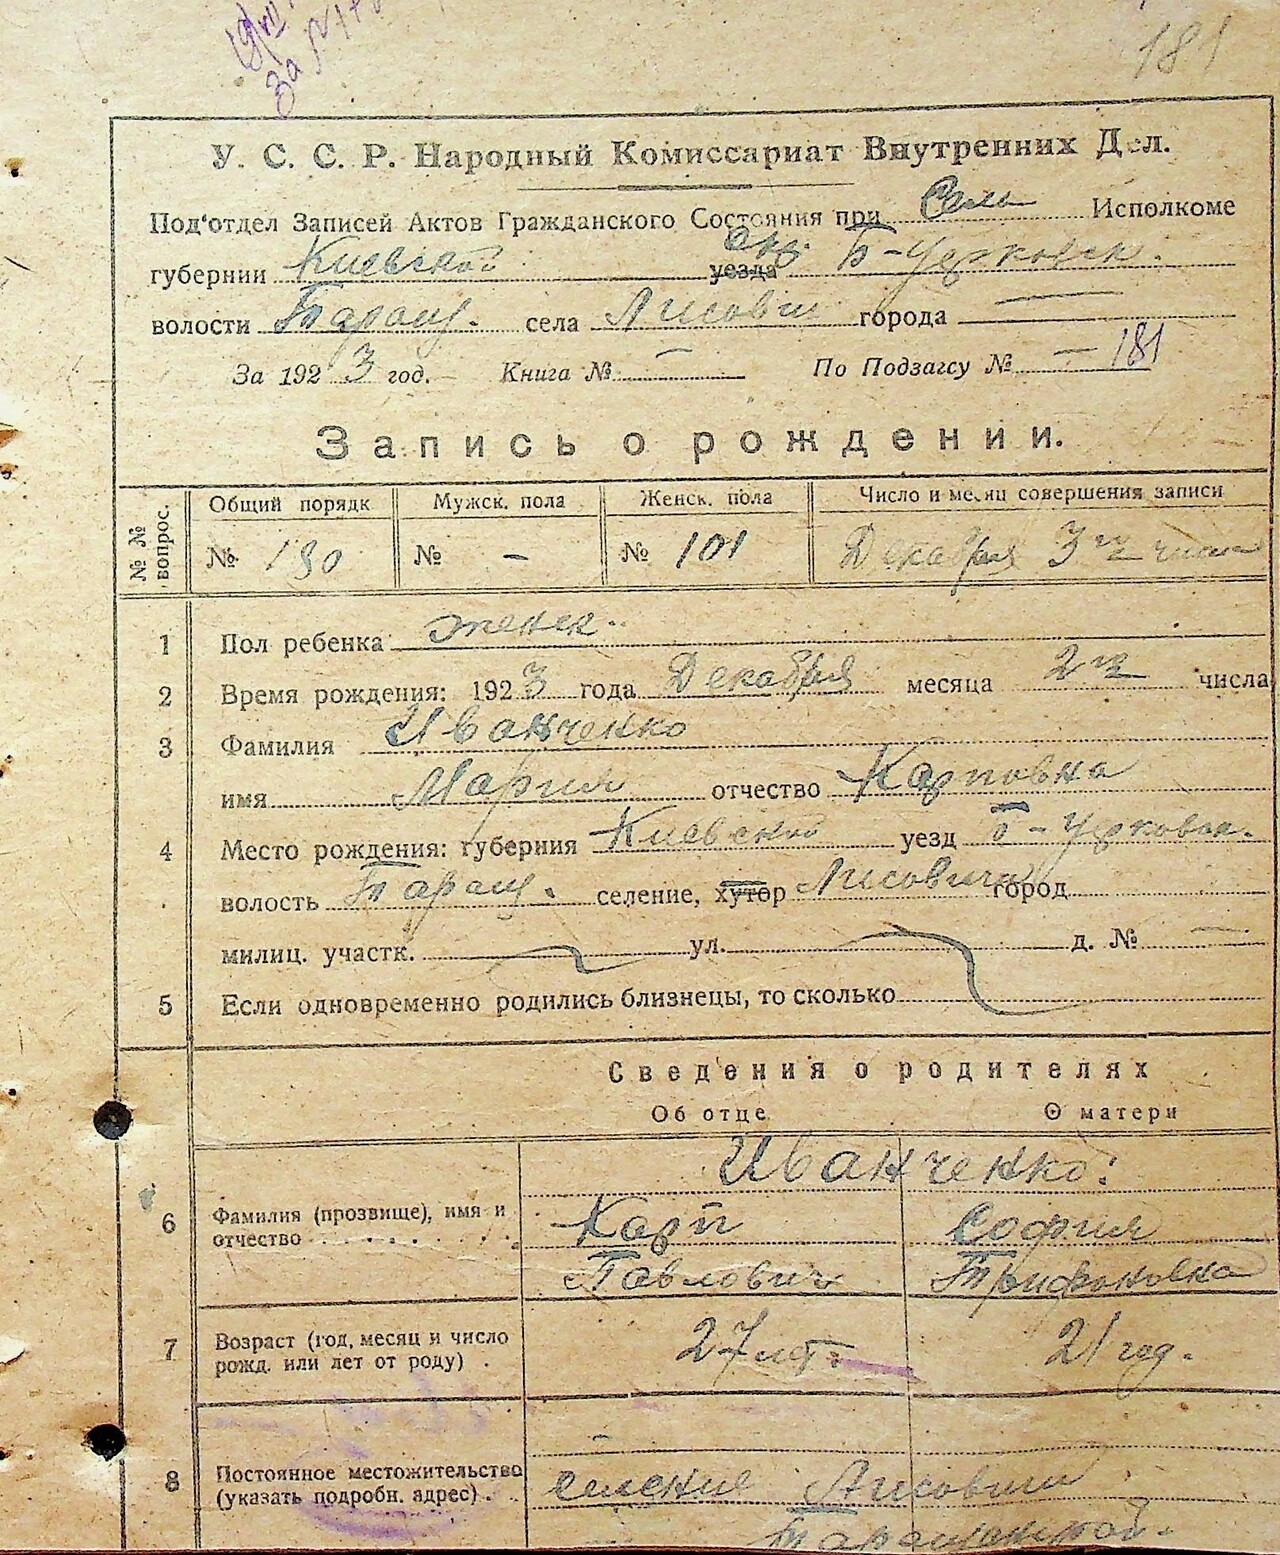 181
У. С. С. Р. Народный Комиссариат Внутренних Дел.
Под'отдел Записей Актов Гражданского Состояния при Сель Исполкоме
губернии Киевской уезда окр. Б-Церковск.
волости Таращ. села Лисович города —
За 1923 год. Книга № — По Подзагсу № — 181
Запись о рождении.
№ № вопрос. Общий порядк Мужск. пола Женск. пола Число и месяц совершения записи
№ 180 № - № 101 Декабря 3го числа
1 Пол ребенка женск.
2 Время рождения: 1923 года Декабря месяца 2го числа
3 Фамилия Иванченко
имя Мария отчество Карповна
4 Место рождения: губерния Киевской уезд Б-Церковск.
волость Таращ. селение, хутор Лисовичи город
милиц. участк. ул. д. № —
5 Если одновременно родились близнецы, то сколько
Сведения о родителях
Об отце О матери
Иванченко:
6 Фамилия (прозвище), имя и отчество Карп София
Павлович Трифоновна
7 Возраст (год, месяц и число рожд. или лет от роду) 27 лет. 21 год.
8 Постоянное местожительство (указать подробн. адрес) селение Лисович